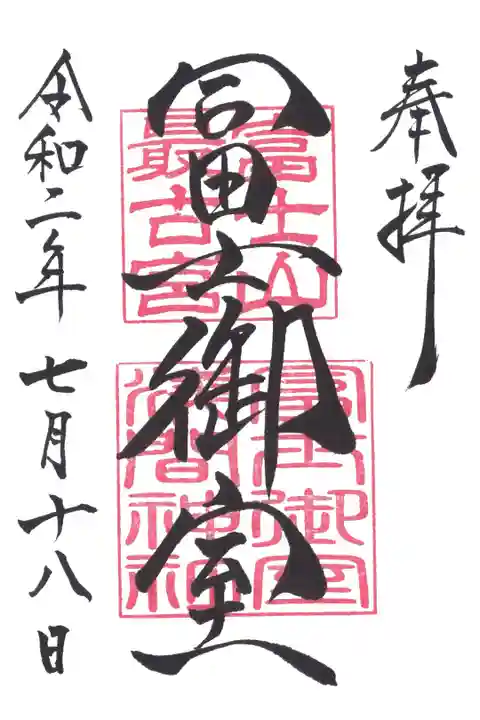 奉拝
冨士御室
富士山
最古宮
冨士御室
浅間神社
令和二年 七月十八日